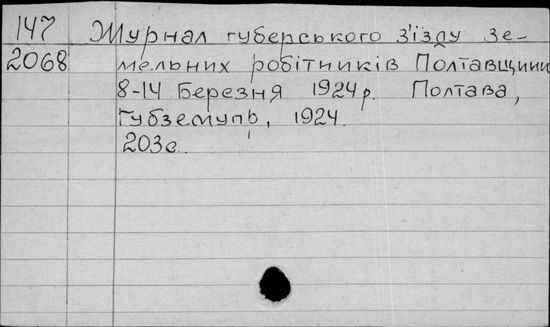 147 Журнал губерського з'їзду зе-
2068 мельних робітників Полтавщини
8-14 Березня 1924 р. Полтава,
Губземупр, 1924.
203 с.